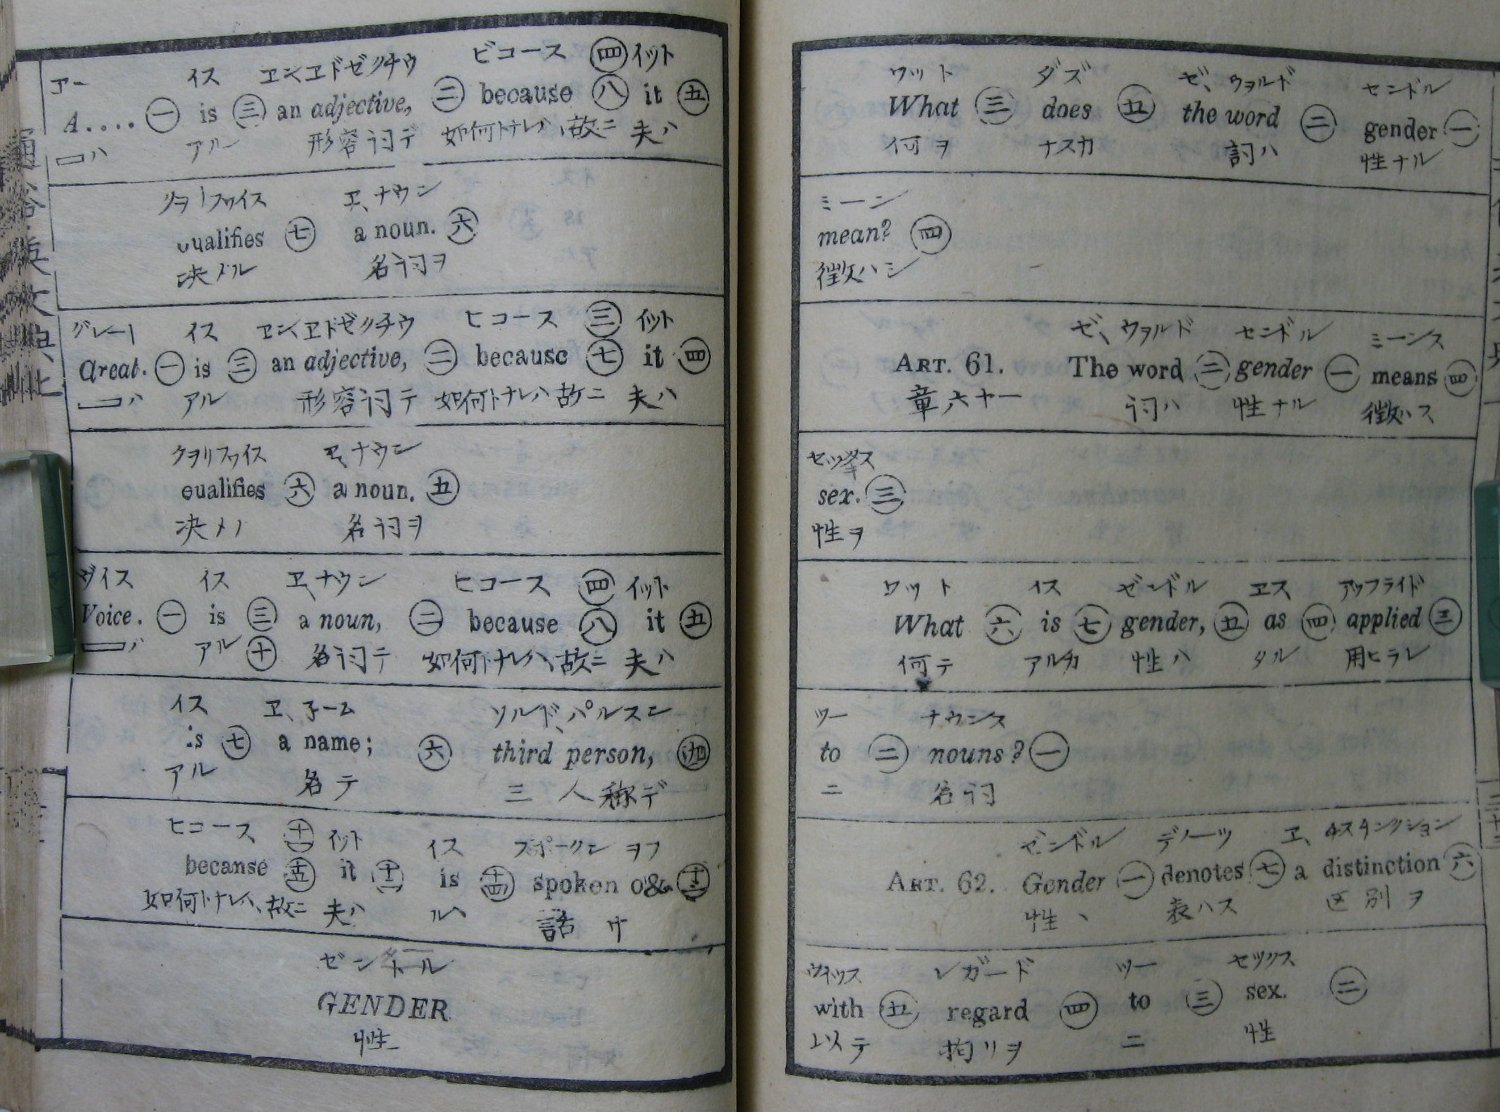 ヱー イス ヱン、ヱドゼクチウ ビコース 四 イット
A.... 一 is 三 an adjective, 二 because 八 it 五
ハ アル 形容詞デ 如何トナレハ、故ニ 夫ハ
クヲリファイス ヱ、ナウン
qualifies 七 a noun. 六
决メル 名詞ヲ
グレート イス ヱン、ヱドゼクチウ ヒコース 三 イット
Great. 一 is 三 an adjective, 二 because 七 it 四
ハ アル 形容詞テ 如何トナレハ、故ニ 夫ハ
クヲリファイス ヱ、ナウン
qualifies 六 a noun. 五
决メル 名詞ヲ
ヴイス イス ヱ、ナウン ヒコース 四 イット
Voice. 一 is 三 a noun, 二 because 八 it 五
ハ アル 十 名詞テ 如何トナレハ、故ニ 夫ハ
イス ヱ、子ーム ソルド、パルスン
is 七 a name; 六 third person, 九
アル 名テ 三人称デ
ヒコース 十一 イット イス スポークン ヲフ
becanse 十五 it 十二 is 十四 spoken o& 十三
如何トナレハ、故ニ 夫ハ ル 話サ
ゼンドル
GENDER
性
ワット ダズ ゼ、ウヲルド センドル
What 三 does 五 the word 二 gender 一
何ヲ ナスカ 詞ハ 性ナル
ミーン
mean? 四
徴ハシ
ゼ、ウヲルド センドル ミーンス
ART. 61. The word 二 gender 一 means 四
章六十一 詞ハ 性ナル 徴ハス
セックス
sex. 三
性ヲ
ワット イス ゼンドル ヱス アップライド
What 六 is 七 gender, 五 as 四 applied 三
何テ アルカ 性ハ タル 用ヒラレ
ツー ナウンス
to 二 nouns? 一
ニ 名詞
ゼンドル デノーツ ヱ、チスチンクション
ART. 62. Gender 一 denotes 七 a distinction 六
性ハ 表ハス 区別ヲ
ウイッス レガード ツー セックス
with 五 regard 四 to 三 sex. 二
以テ 拘リヲ ニ 性